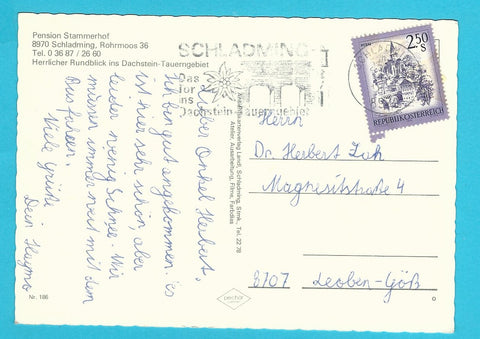 Pension Stammerhof
8970 Schladming, Rohrmoos 36
Tel. 0 36 87 / 26 60
Herrlicher Rundblick ins Dachstein-Tauerngebiet
SCHLADMING
Das
Tor
ins
Dachstein-Tauerngebiet
2.50
S
REPUBLIK ÖSTERREICH
Lieber Onkel Herbert,
Ich bin gut angekommen. Es
ist hier sehr schön, aber
leider wenig Schnee. Wir
müssen immer weit mit dem
Bus fahren.
Viele Grüße
Dein Haymo
Ansichtskartenverlag Landl, Schladming, Stmk., Tel. 22 78
Atelier, Ausarbeitung, Filme, Farbdias
Herrn
Dr. Herbert
Magnesitstraße 4
8707 Leoben-Göß
Nr. 186